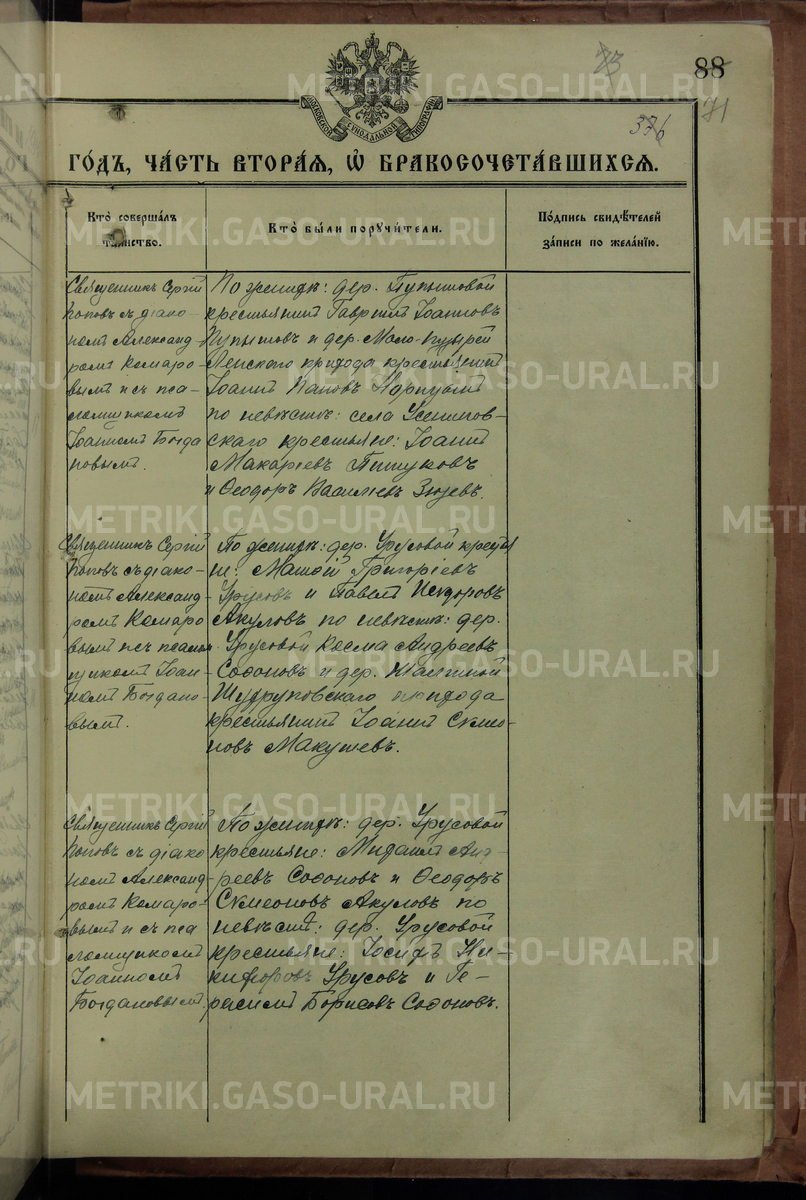 73
88
71
376
МОСКОВСКОЙ СѴНОДАЛЬНОЙ ТИПОГРАФІИ
ГО́ДЪ, ЧА́СТЬ ВТОРА́Я, Ѽ БРАКОСОЧЕТА́ВШИХСЯ.
Кто̀ соверша́лъ
та́инство.
Кто̀ бы́ли порꙋчи́тели.
По́дпись свидѣ́телей
за́писи по жела́нію.
Священникъ Сергій
Поповъ съ діако-
номъ Александ
ромъ Комаро-
вымъ и съ пса-
ломщикомъ
Іоанномъ Богда
новымъ.
По женихѣ: дер.
крестьянинъ Гавріилъ Іоанновъ
и дер. Мало-
Ленского прихода крестьянинъ
Іоаннъ
по невѣстѣ: села Усенинов-
скаго крестьяне: Іоаннъ
Макаріевъ Пишуковъ
и Ѳеодоръ Василіевъ Зюзевъ.
Священникъ Сергій
Поповъ съ діако-
номъ Александ
ромъ Комаро
вымъ и съ псалом
щикомъ Іоан-
номъ Богдано-
вымъ.
По женихѣ: дер. Урусовой крестья
не: Григоріевъ
Урусовъ и Павелъ Исидоровъ
Акуловъ по невѣстѣ: дер.
Урусовой Косма Андреевъ
Софоновъ и дер.
прихода
крестьянинъ Іоаннъ Симео-
новъ Макушевъ.
Священникъ Сергій
Поповъ съ діако
номъ Александ-
ромъ Комаро-
вымъ и съ пса
ломщикомъ
Іоанномъ
Богдановымъ.
По женихѣ: дер. Урусовой
крестьяне: Михаилъ Анд-
реевъ Софоновъ и Ѳеодоръ
Симеоновъ Акуловъ по
невѣстѣ: дер. Урусовой
крестьяне: Іосифъ Ни-
кифоровъ Урусовъ и Ге-
расимъ Борисовъ Софоновъ.
METRIKI.GASO-URAL.RU